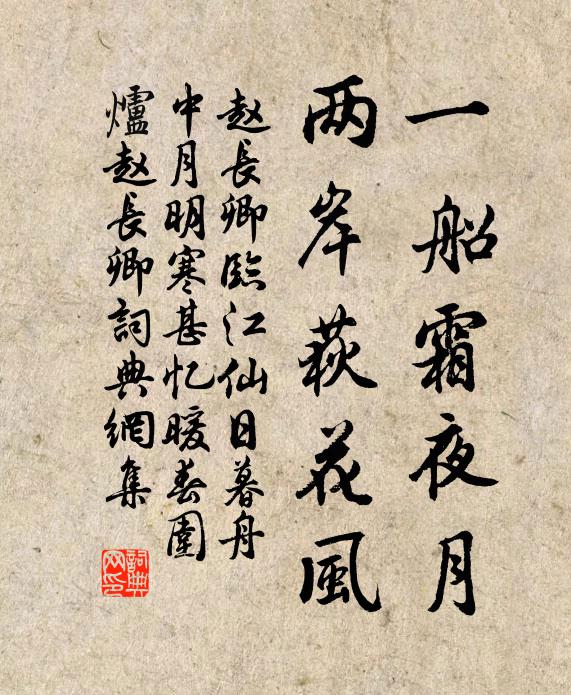 一船霜夜月
两岸萩花風
赵長卿臨江仙日暮舟
中月明寒甚忆暖春園
爐赵長卿詞典網集
詞典网印